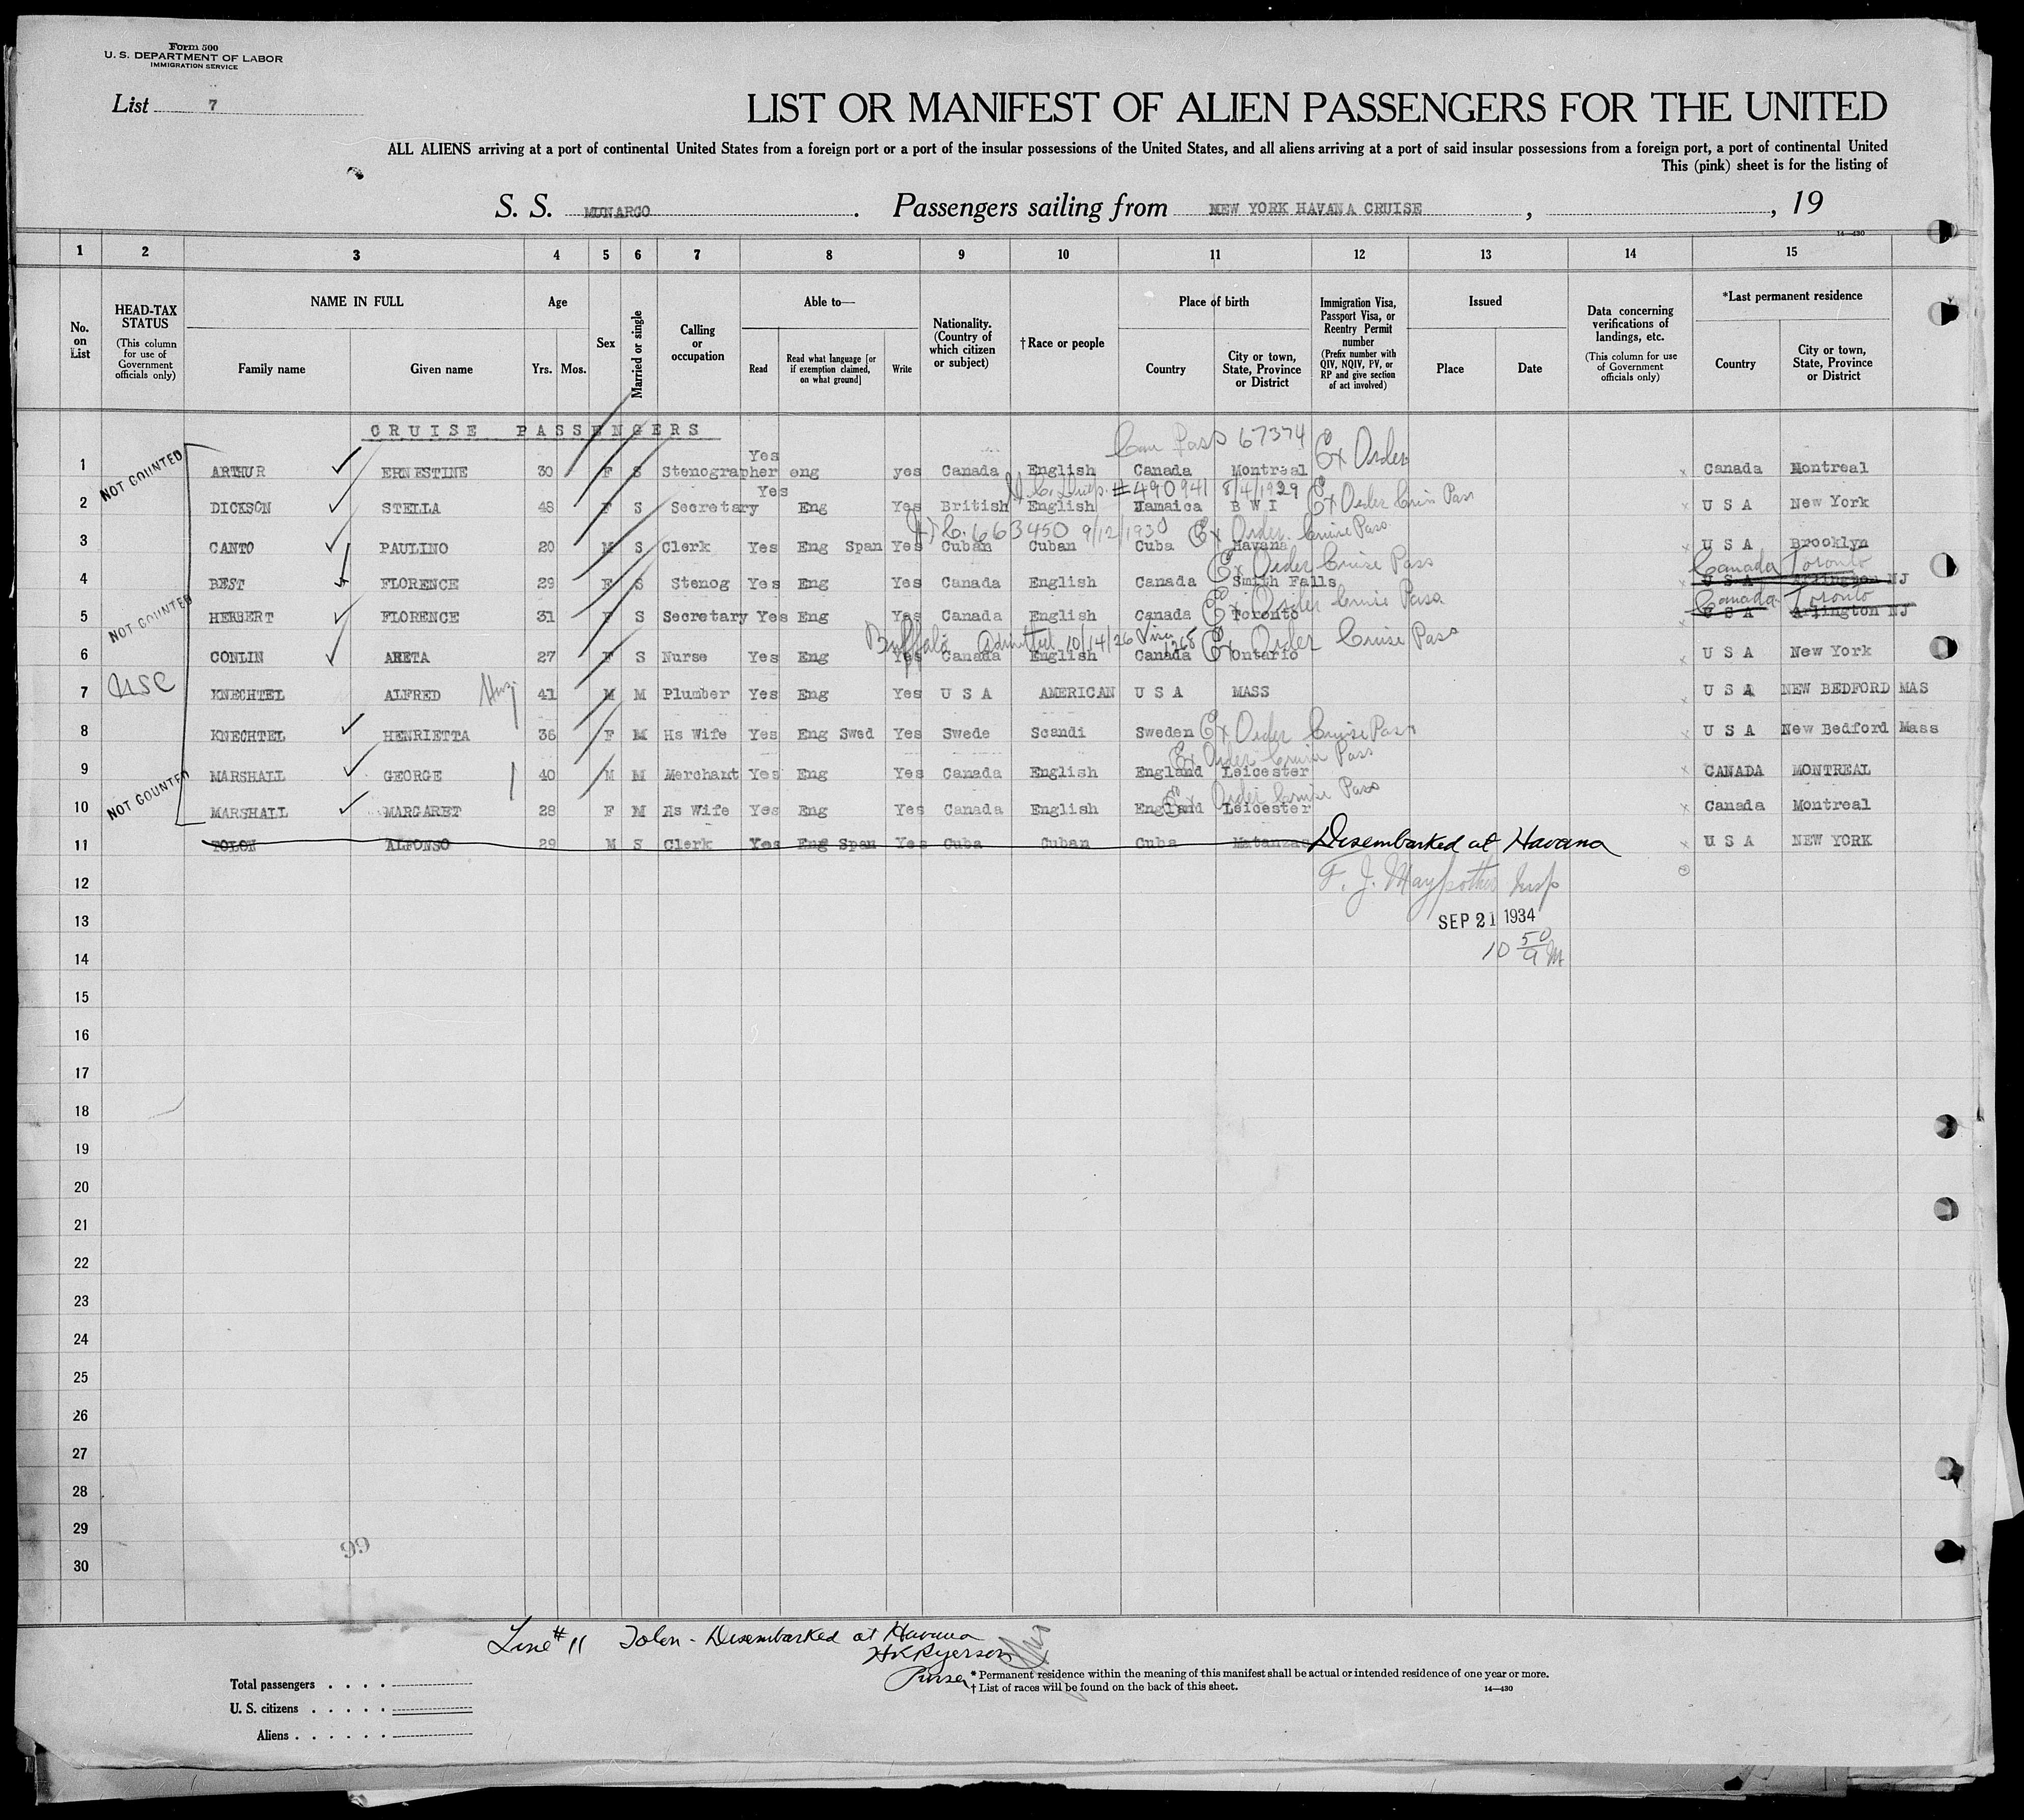 Form 500
U. S. DEPARTMENT OF LABOR
IMMIGRATION SERVICE
List 7
LIST OR MANIFEST OF ALIEN PASSENGERS FOR THE UNITED
ALL ALIENS arriving at a port of continental United States from a foreign port or a port of the insular possessions of the United States, and all aliens arriving at a port of said insular possessions from a foreign port, a port of continental United
This (pink) sheet is for the listing of
S. S. MUNARGO. Passengers sailing from NEW YORK HAVANA CRUISE, , 19
14—430
1 2 3 4 5 6 7 8 9 10 11 12 13 14 15
No. on List
HEAD-TAX STATUS (This column for use of Government officials only)
NAME IN FULL Family name Given name
Age Yrs. Mos.
Sex
Married or single
Calling or occupation
Able to— Read Read what language [or if exemption claimed, on what ground] Write
Nationality. (Country of which citizen or subject)
†Race or people
Place of birth Country City or town, State, Province or District
Immigration Visa, Passport Visa, or Reentry Permit number (Prefix number with QIV, NQIV, PV, or RP and give section of act involved)
Issued Place Date
Data concerning verifications of landings, etc. (This column for use of Government officials only)
*Last permanent residence Country City or town, State, Province or District
CRUISE PASSENGERS
Can Pass 67374 Ex Order
1 NOT COUNTED ARTHUR ERNESTINE 30 F S Stenographer Yes eng yes Canada English Canada Montreal Canada Montreal
#490941 8/4/1929 Ex Order Cruis Pass
2 DICKSON STELLA 48 F S Secretary Yes Eng Yes British English Jamaica B W I U S A New York
663450 9/12/1930 Ex Order Cruise Pass
3 CANTO PAULINO 20 M S Clerk Yes Eng Span Yes Cuban Cuban Cuba Havana U S A Brooklyn
Ex Order Cruise Pass Canada Toronto
4 BEST FLORENCE 29 F S Stenog Yes Eng Yes Canada English Canada Smith Falls U S A Arlington NJ
Ex Order Cruise Pass Canada Toronto
5 NOT COUNTED HERBERT FLORENCE 31 F S Secretary Yes Eng Yes Canada English Canada Toronto U S A Arlington NJ
Buffalo Admitted 10/14/26 Visa 1268 Ex Order Cruise Pass
6 CONLIN ARETA 27 F S Nurse Yes Eng Yes Canada English Canada Ontario U S A New York
7 USC KNECHTEL ALFRED 41 M M Plumber Yes Eng Yes U S A AMERICAN U S A MASS U S A NEW BEDFORD MAS
8 KNECHTEL HENRIETTA 36 F M Hs Wife Yes Eng Swed Yes Swede Scandi Sweden Ex Order Cruise Pass U S A New Bedford Mass
Ex Order Cruise Pass
9 MARSHALL GEORGE 40 M M Merchant Yes Eng Yes Canada English England Leicester CANADA MONTREAL
Ex Order Cruise Pass
10 NOT COUNTED MARSHALL MARGARET 28 F M Hs Wife Yes Eng Yes Canada English England Leicester Canada Montreal
11 TOLON ALFONSO 29 M S Clerk Yes Eng Span Yes Cuba Cuban Cuba Matanzas Disembarked at Havana U S A NEW YORK
12
F. J. Maypother Insp
13 SEP 21 1934
14 10 50 AM
15
16
17
18
19
20
21
22
23
24
25
26
27
28
29
99
30
Line #11 Tolon - Disembarked at Havana
H K Ryerson
Purser
Total passengers
U. S. citizens
Aliens
* Permanent residence within the meaning of this manifest shall be actual or intended residence of one year or more.
† List of races will be found on the back of this sheet. 14—430